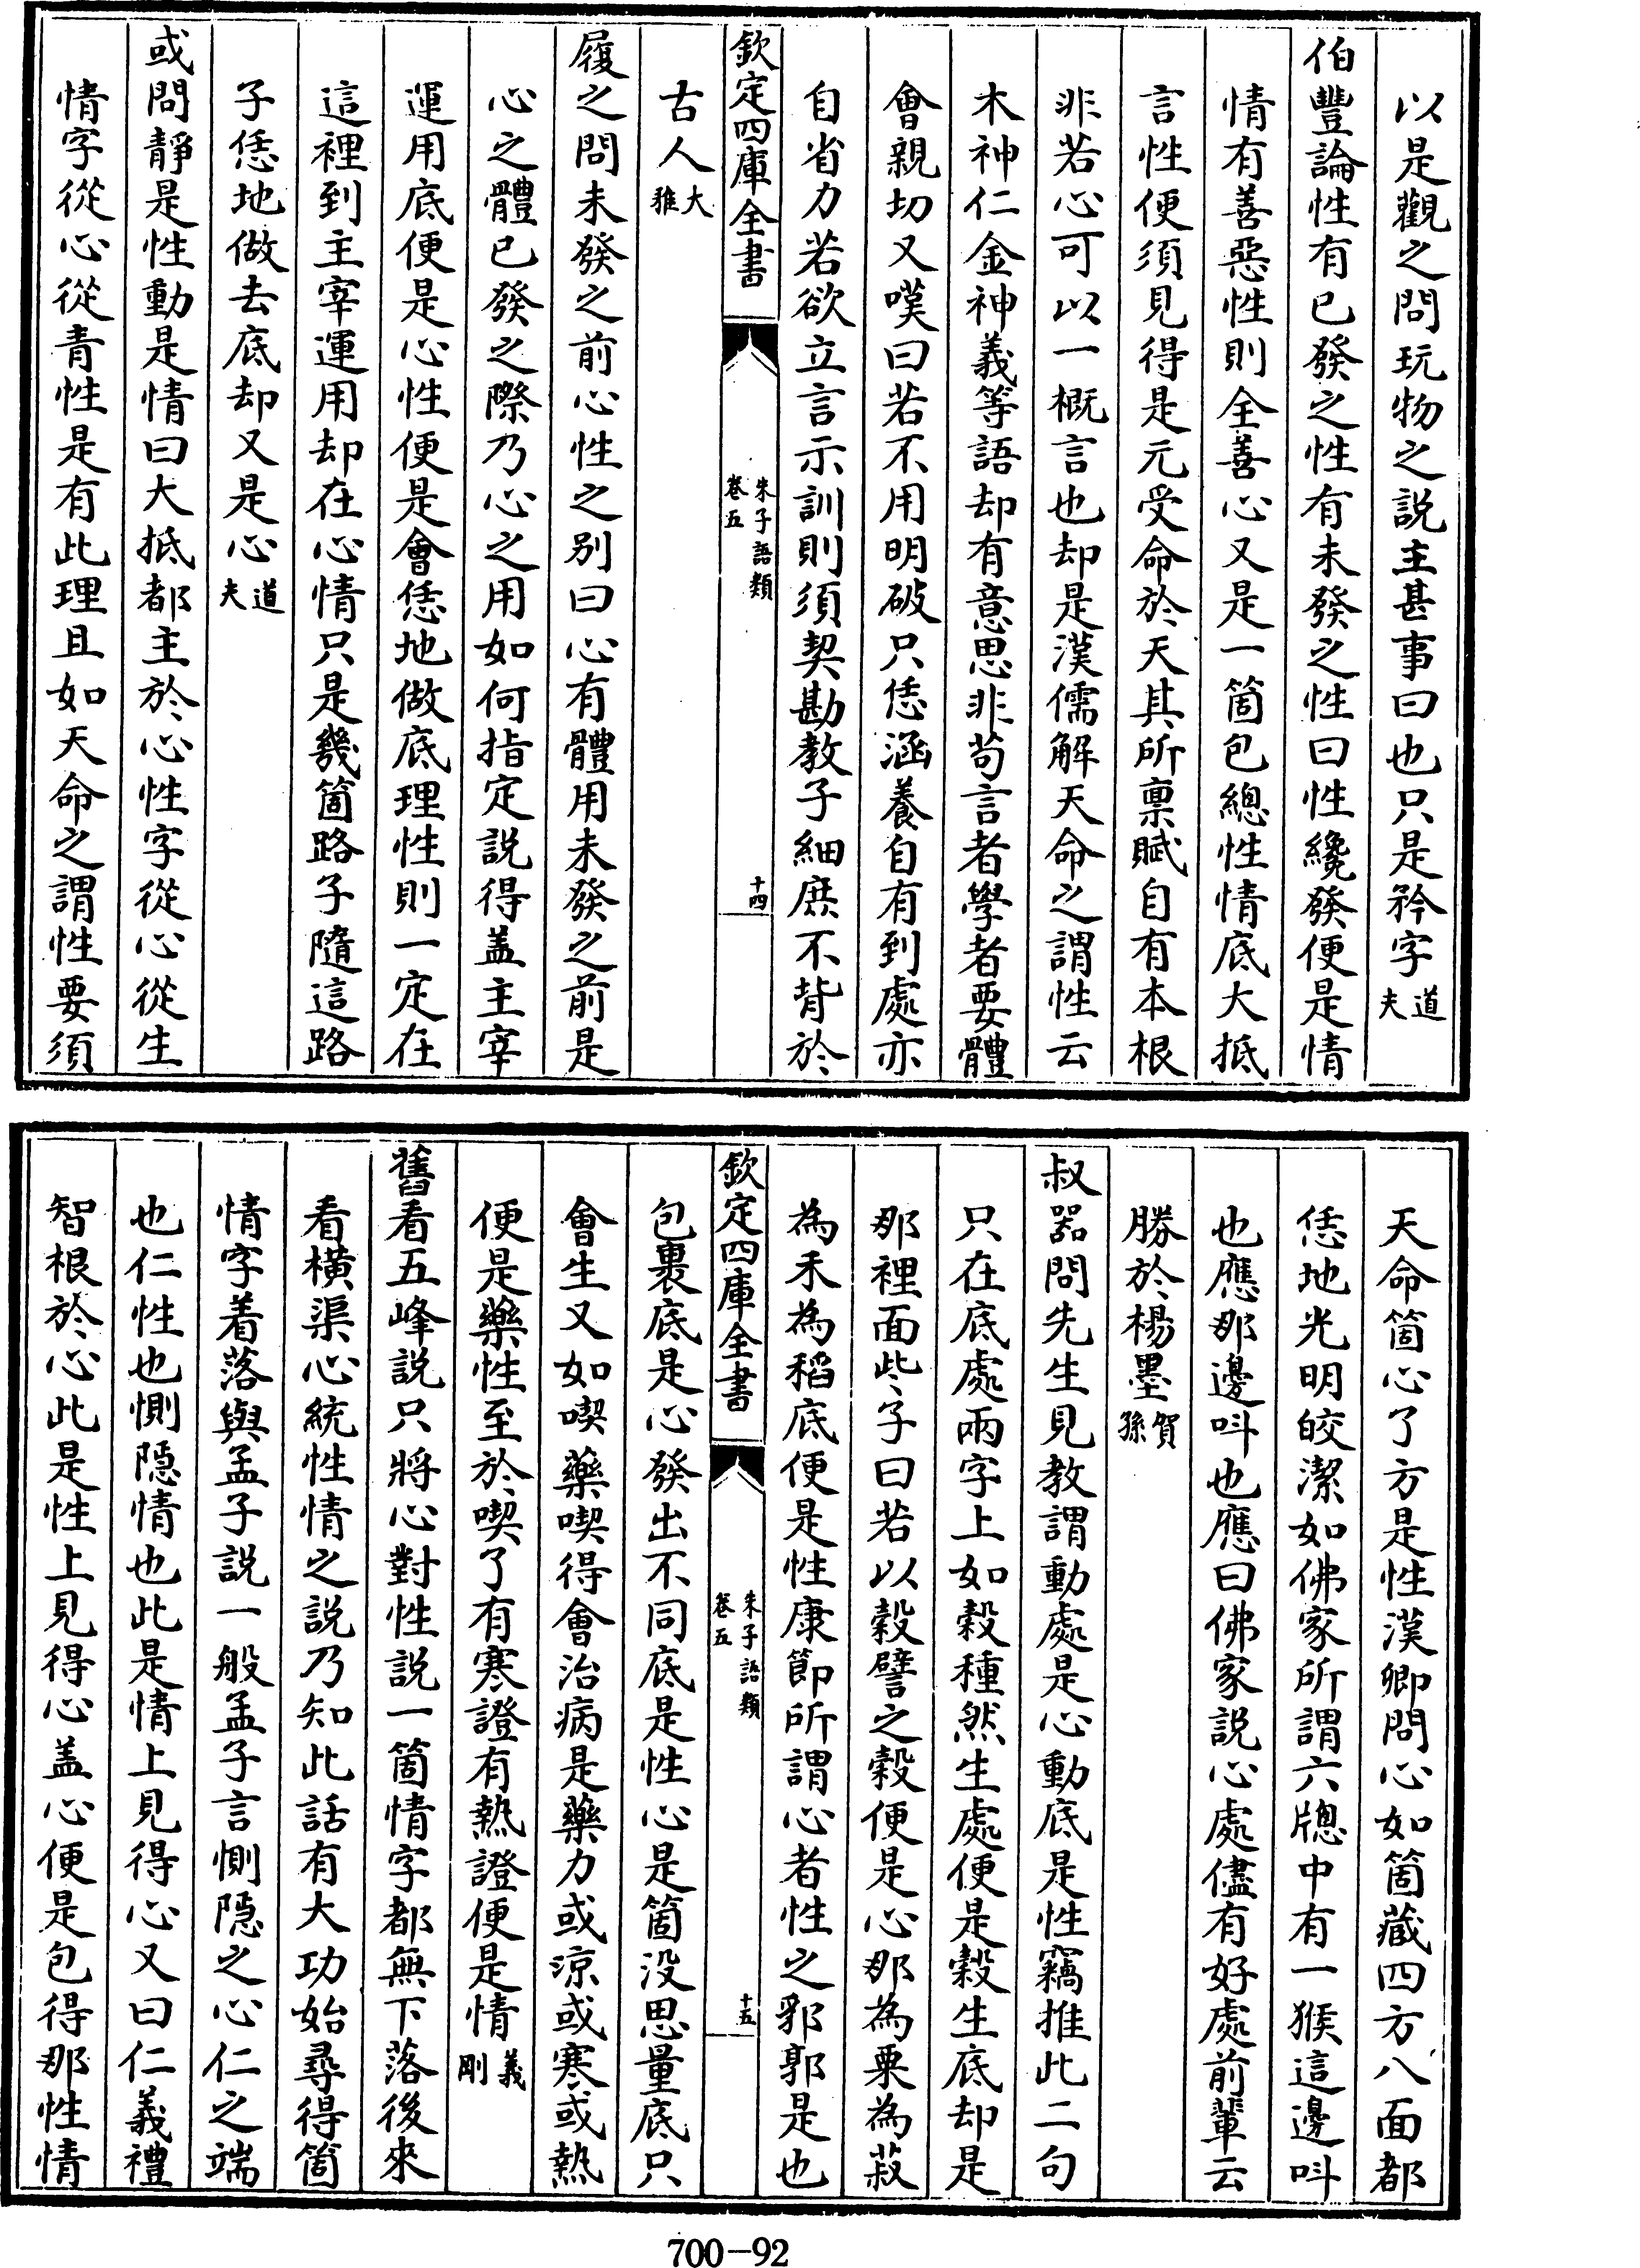 以是觀之問玩物之説主甚事曰也只是矜字道夫
伯豐論性有已發之性有未發之性曰性纔發便是情
情有善惡性則全善心又是一箇包總性情底大抵
言性便須見得是元受命於天其所禀賦自有本根
非若心可以一概言也却是漢儒解天命之謂性云
木神仁金神義等語却有意思非苟言者學者要體
會親切又嘆曰若不用明破只恁涵養自有到處亦
自省力若欲立言示訓則須契勘教子細庶不背於
欽定四庫全書
朱子語類
卷五
十四
古人大雅
履之問未發之前心性之别曰心有體用未發之前是
心之體已發之際乃心之用如何指定説得盖主宰
運用底便是心性便是會恁地做底理性則一定在
這裡到主宰運用却在心情只是幾箇路子隨這路
子恁地做去底却又是心道夫
或問靜是性動是情曰大抵都主於心性字從心從生
情字從心從青性是有此理且如天命之謂性要須
天命箇心了方是性漢卿問心如箇藏四方八面都
恁地光明皎潔如佛家所謂六牕中有一猴這邊叫
也應那邊叫也應曰佛家説心處儘有好處前輩云
勝於楊墨賀孫
叔器問先生見教謂動處是心動底是性竊推此二句
只在底處兩字上如穀種然生處便是穀生底却是
那裡面些子曰若以穀譬之穀便是心那為粟為菽
為禾為稻底便是性康節所謂心者性之郛郭是也
欽定四庫全書
朱子語類
卷五
十五
包裹底是心發出不同底是性心是箇没思量底只
會生又如喫藥喫得會治病是藥力或凉或寒或熱
便是藥性至於喫了有寒證有熱證便是情義剛
舊看五峰説只將心對性説一箇情字都無下落後來
看横渠心統性情之説乃知此話有大功始尋得箇
情字着落與孟子説一般孟子言惻隠之心仁之端
也仁性也惻隠情也此是情上見得心又曰仁義禮
智根於心此是性上見得心盖心便是包得那性情
700-92